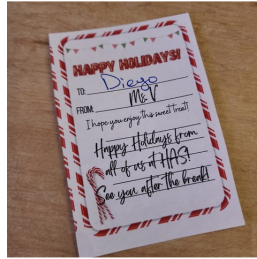 HAPPY HOLIDAYS!
TO: Diego
FROM: Ms. V
I hope you enjoy this sweet treat!
Happy Holidays from
all of us at HAS!
See you after the break!